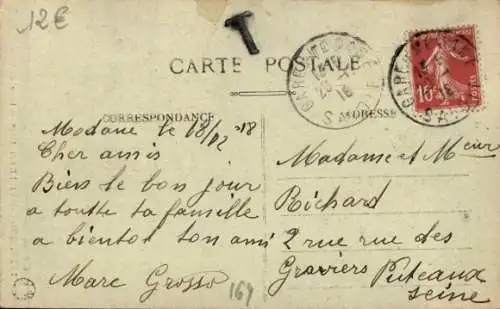 12€
T
CARTE POSTALE
CORRESPONDANCE
ADRESSE
10
POSTES
Modane le 18/12 - 18
Cher amis
Biers le bon jour
a toutte ta famille
a bientot ton ami
Marc Grosso
164
Madame et Mr
Richard
2 rue rue des
Graviers Puteaux
Seine